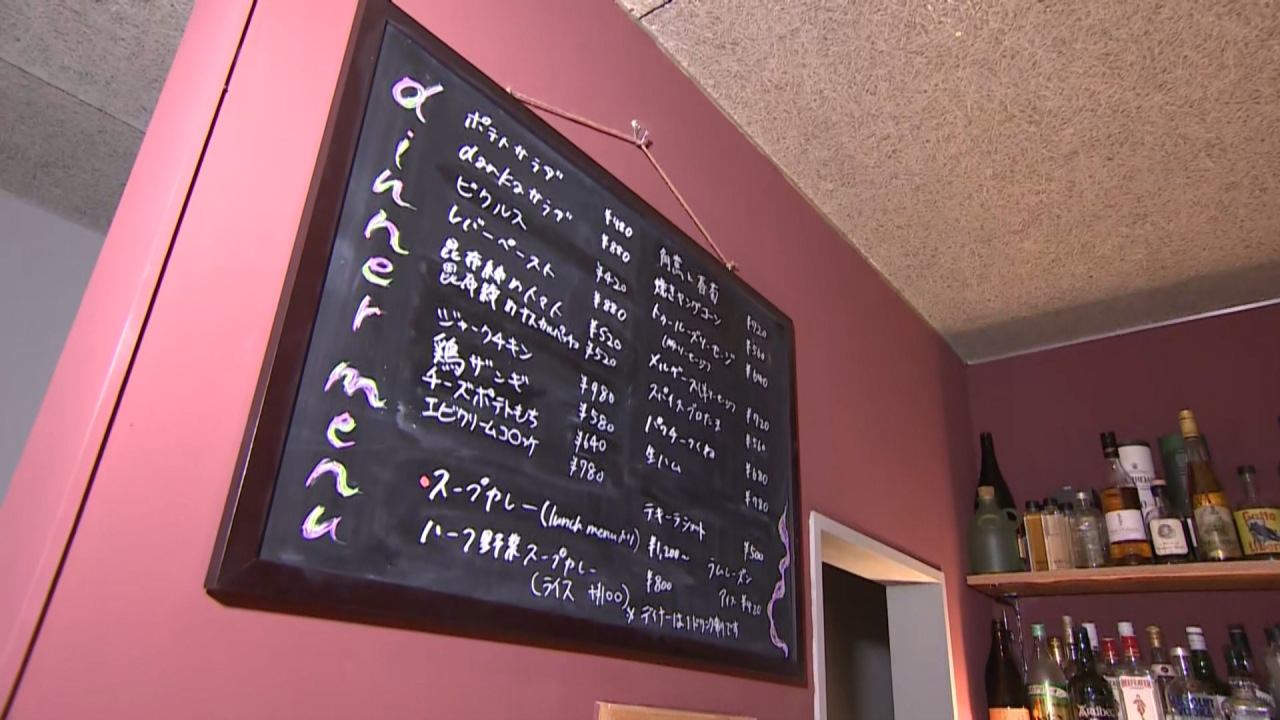 dinner menu
ポテトサラダ ¥480
dankaサラダ ¥880
ピクルス ¥420
レバーペースト ¥880
昆布締めトマト ¥520
昆布締めナスカルパッチョ ¥520
ジャークチキン ¥980
鶏ザンギ ¥580
チーズポテトもち ¥640
エビクリームコロッケ ¥780
・スープカレー(lunch menuより) ¥1,200〜
ハーフ野菜スープカレー ¥800
(ライス ¥100)
と春菊 ¥720
焼きヤングコーン ¥560
トゥールーズソーセージ ¥640
メルゲーズ(羊ソーセージ) ¥720
スパイスプロたま ¥560
パクチーつくね ¥680
生ハム ¥780
テキーラショット ¥500
ラムレーズン
アイス ¥420
※ディナーは1ドリンク制です
BEEFEATER
Ardbeg